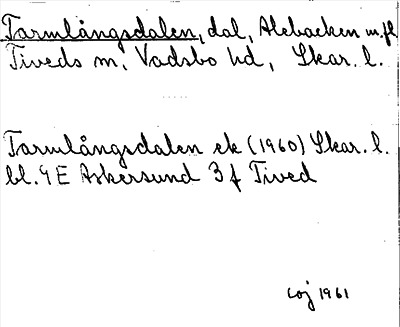 Tarmlångsdalen, dal, Alebacken m.fl.
Tiveds sn, Vadsbo hd, Skar. l.
Tarmlångsdalen ek (1960) Skar. l.
bl. 9E Askersund 3f Tived
1961